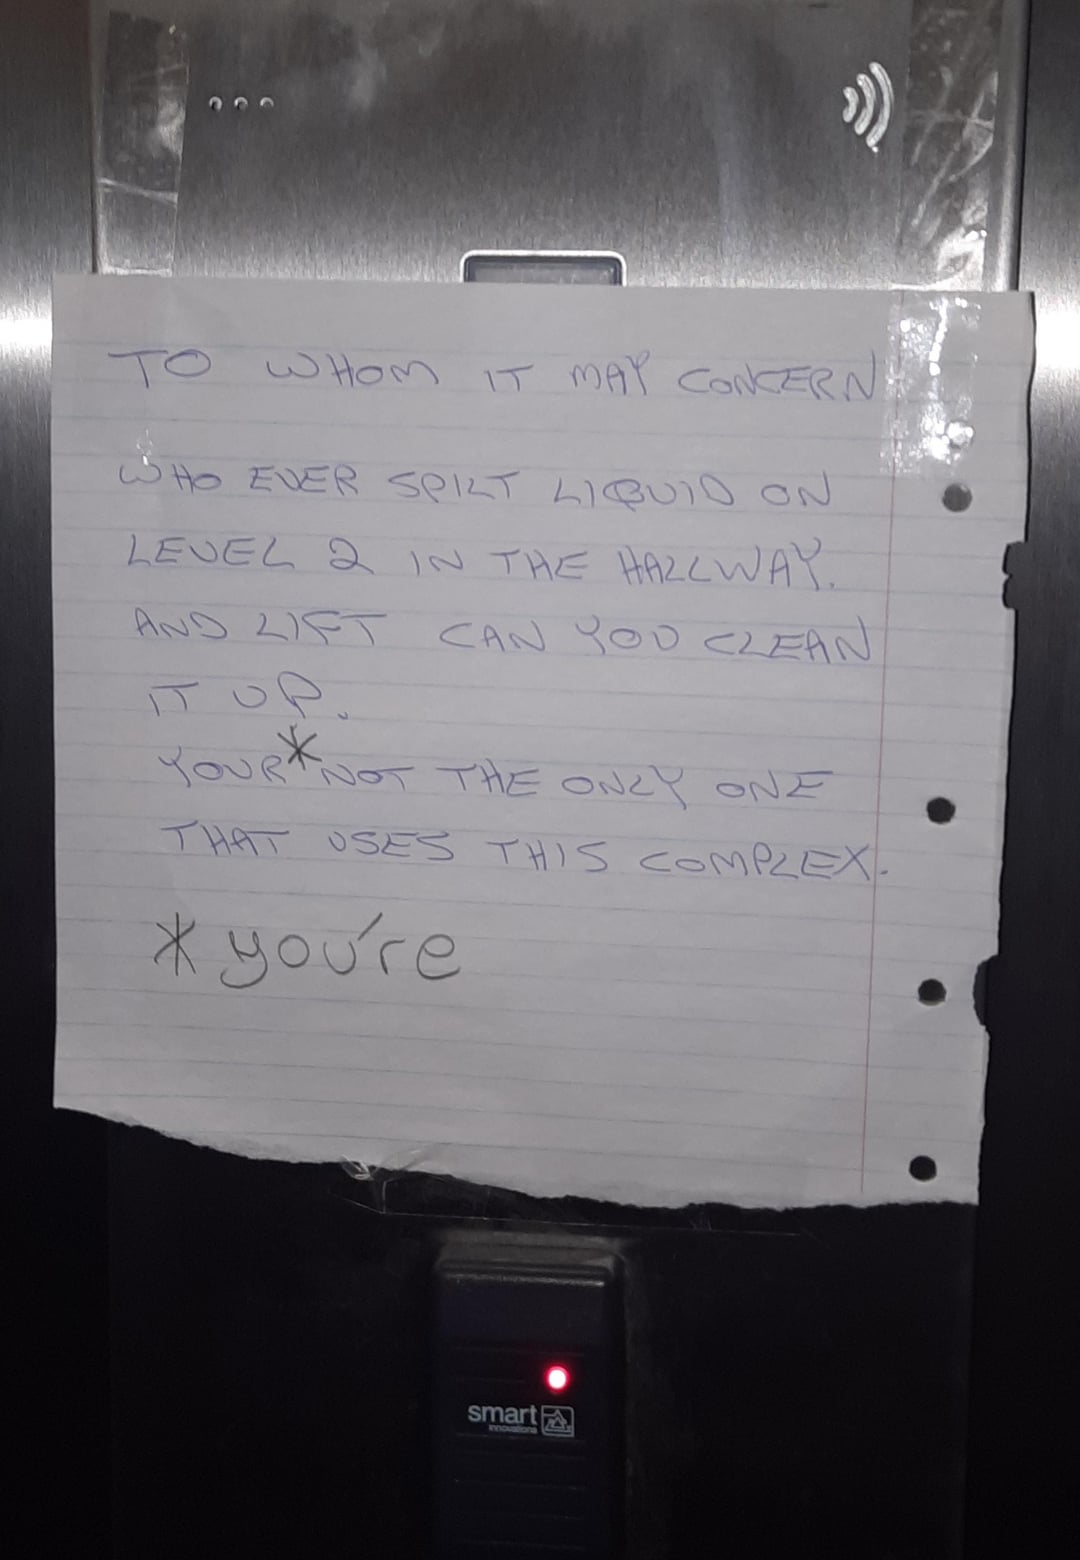 TO WHOM IT MAY CONCERN
WHO EVER SPILT LIQUID ON
LEVEL 2 IN THE HALLWAY.
AND LIFT CAN YOU CLEAN
IT UP.
YOUR* NOT THE ONLY ONE
THAT USES THIS COMPLEX.
* you're
smart
innovations